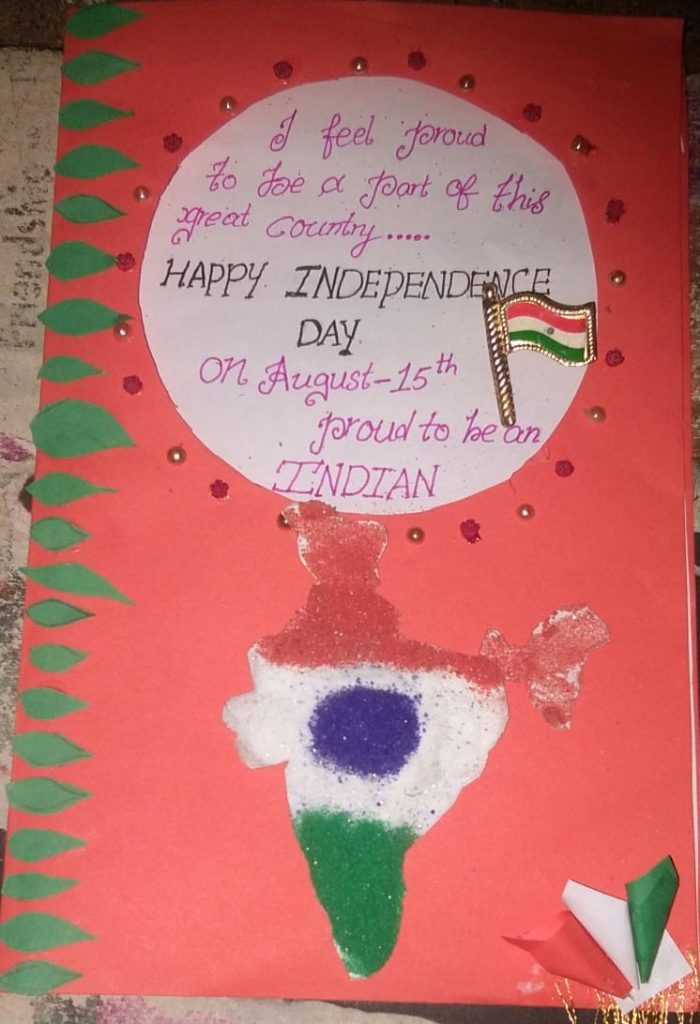 I feel proud
to be a part of this
great country.....
HAPPY INDEPENDENCE
DAY
on August-15th
proud to be an
INDIAN